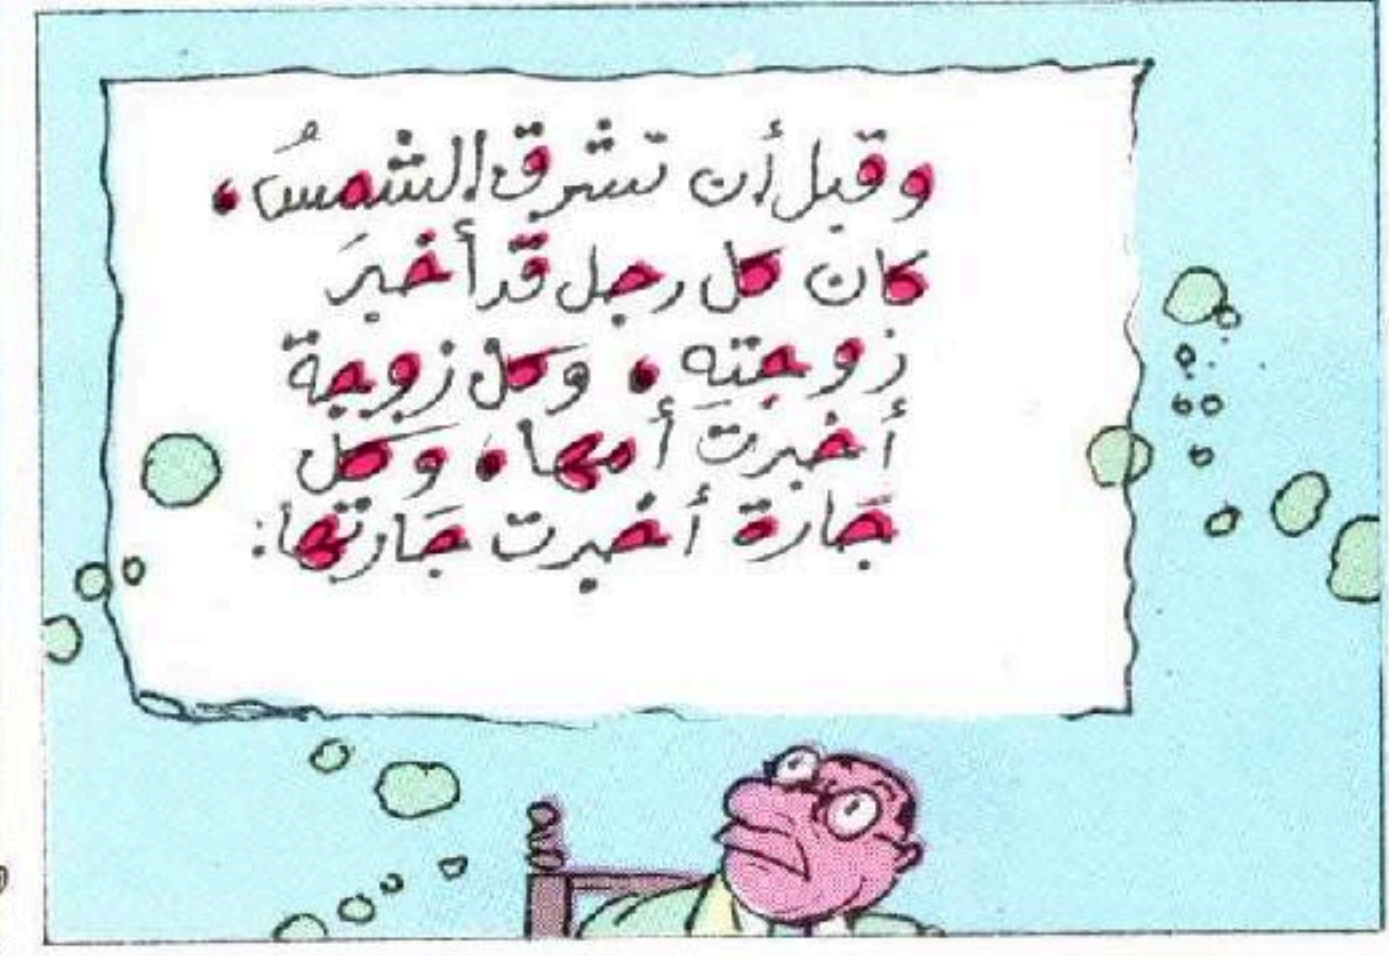 وقبل أن تشرق الشمسُ،
كان كل رجل قد أخبرَ
زوجته، وكل زوجة
أخبرت أمها، وكل
جارة أخبرت جارتها: